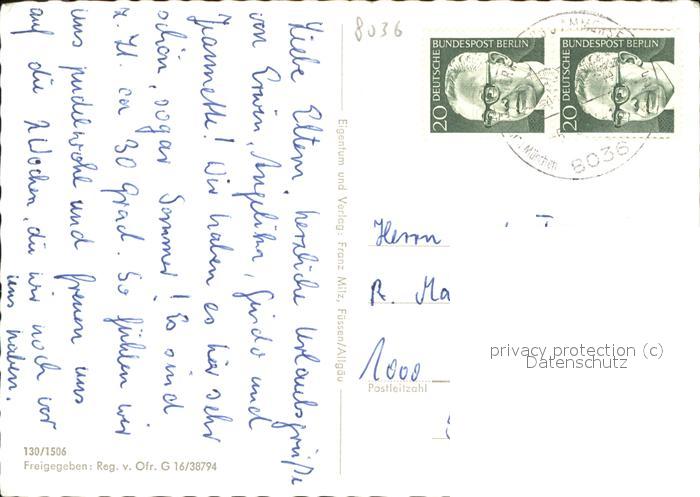 Liebe Eltern, herzliche Urlaubsgrüße
von Erwin, Angelika, Guido und
Jeannette! Wir haben es hier sehr
schön, sogar Sommer! Es sind
z. Zt. ca 30 Grad. So fühlen wir
uns pudelwohl und freuen uns
auf die 2 Wochen, die wir noch vor
uns haben.
130/1506
Freigegeben: Reg. v. Ofr. G 16/38794
Eigentum und Verlag: Franz Milz, Füssen/Allgäu
8036
20 DEUTSCHE BUNDESPOST BERLIN
20 DEUTSCHE BUNDESPOST BERLIN
8036
Herrn
R. Ma
1000
Postleitzahl
privacy protection (c)
Datenschutz